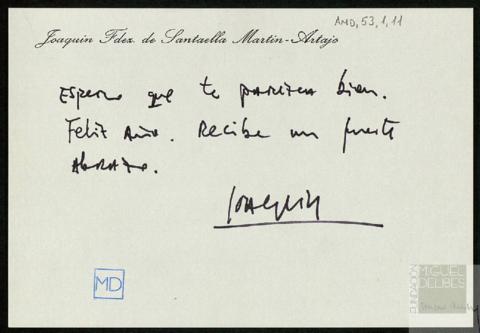 AMD, 53, 1, 11
Joaquin Fdez. de Santaella Martin-Artajo
Espero que te parezca bien.
Feliz Año. Recibe un fuerte
abrazo.
Joaquin
MD
FUNDACIÓN
MIGUEL
DELIBES